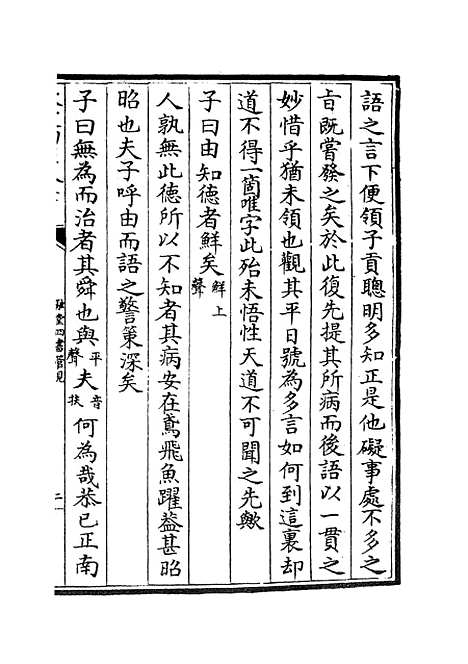 語之言下便領子貢聰明多知正是他礙事處不多之
㫖既嘗發之矣於此復先提其所病而後語以一貫之
妙惜乎猶未領也觀其平日號為多言如何到這裏却
道不得一箇唯字此殆未悟性天道不可聞之先歟
子曰由知德者鮮矣鮮上聲
人孰無此德所以不知者其病安在鳶飛魚躍葢甚昭
昭也夫子呼由而語之警策深矣
子曰無為而治者其舜也與平聲夫音扶何為哉恭已正南
融堂四書管見